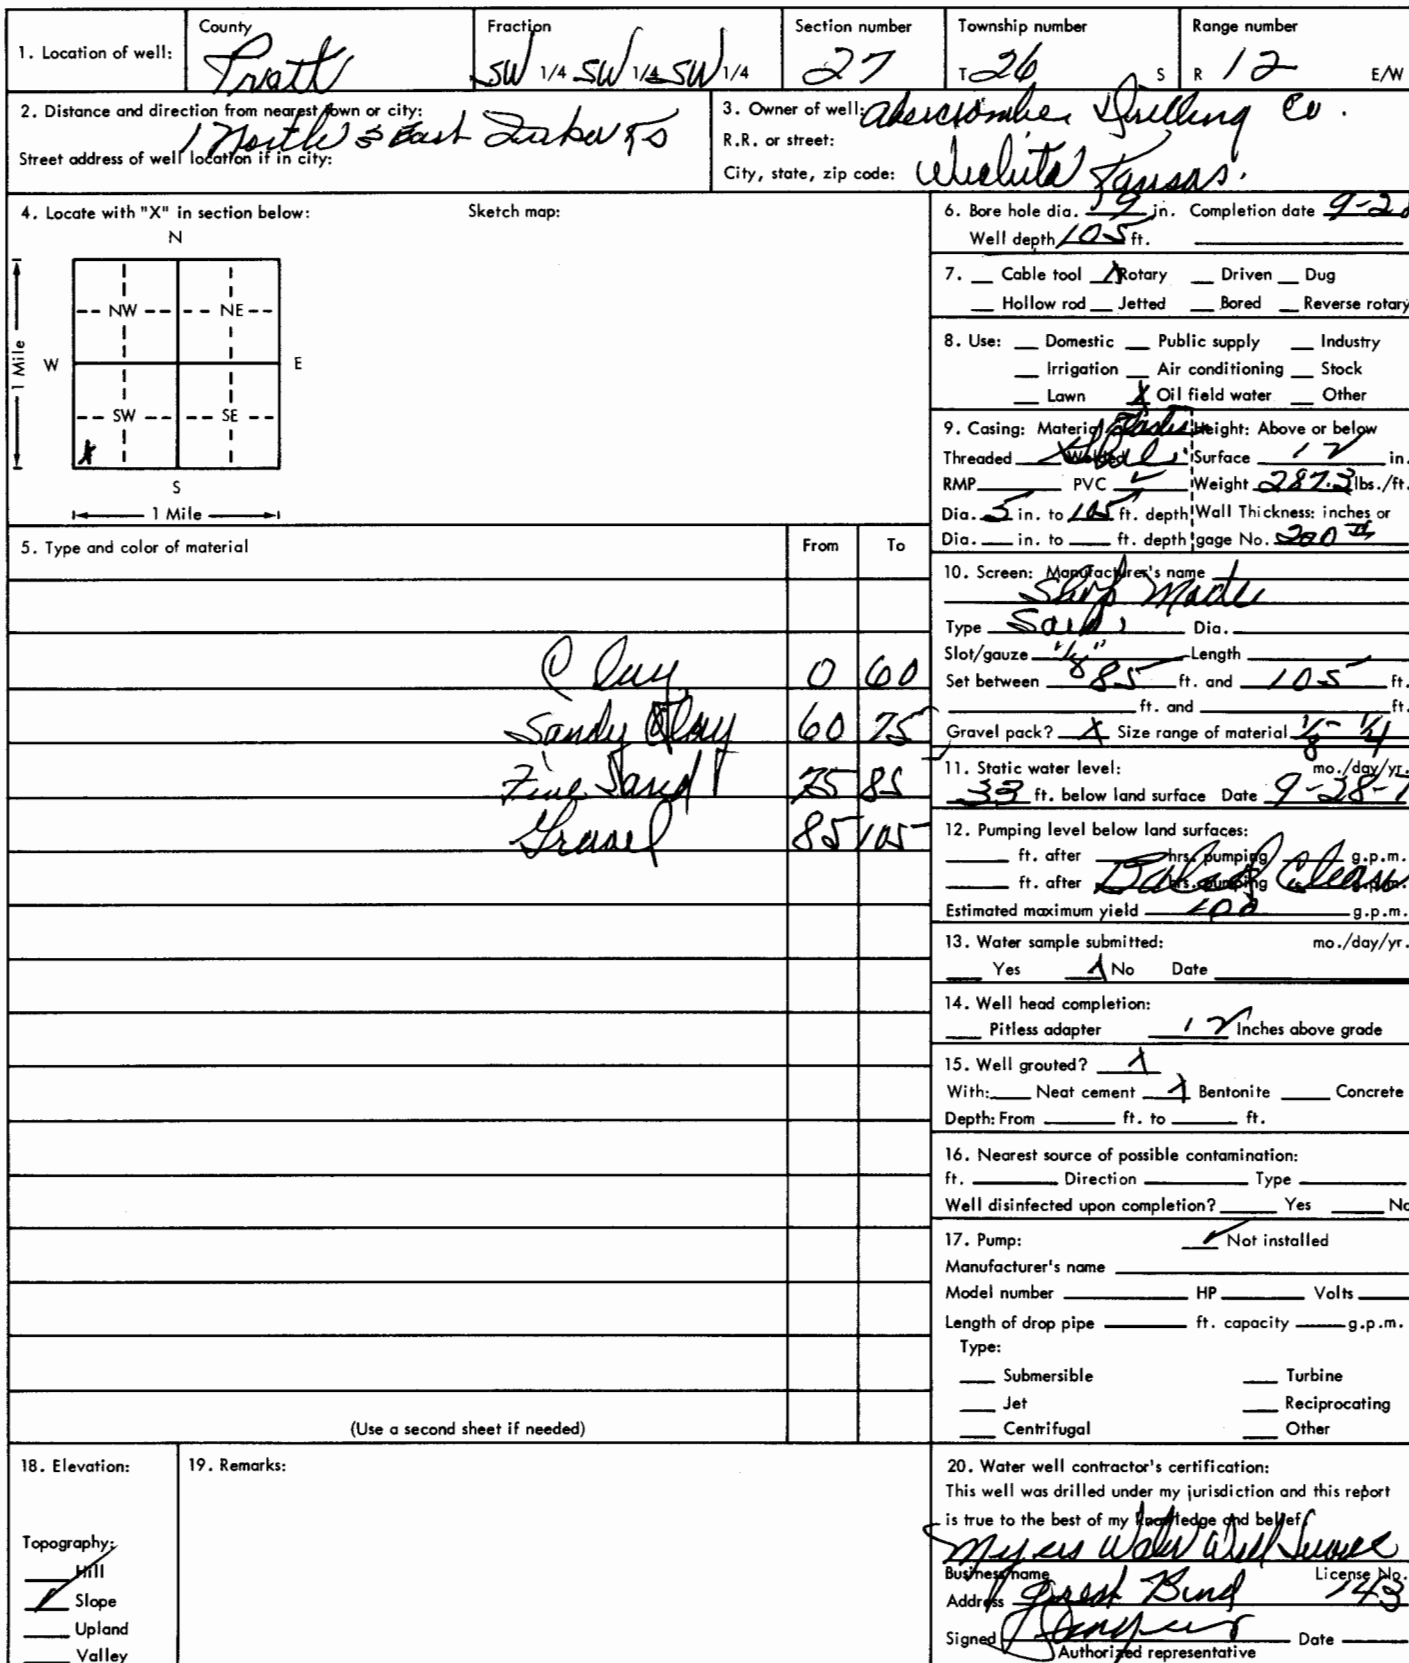 County Fraction Section number Township number Range number
1. Location of well: Pratt SW 1/4 SW 1/4 SW 1/4 27 T 26 S R 12 E/W
2. Distance and direction from nearest town or city: 1 North 3 East
Street address of well location if in city:
3. Owner of well: Drilling Co.
R.R. or street:
City, state, zip code: Wichita Kansas.
4. Locate with "X" in section below: Sketch map:
N
NW NE
W E
1 Mile
SW SE
X
S
1 Mile
5. Type and color of material From To
Clay 0 60
Sandy Clay 60 75
Fine Sand 75 85
Gravel 85 105
(Use a second sheet if needed)
6. Bore hole dia. 9 in. Completion date 9-28
Well depth 105 ft.
7. Cable tool X Rotary Driven Dug
Hollow rod Jetted Bored Reverse rotary
8. Use: Domestic Public supply Industry
Irrigation Air conditioning Stock
Lawn X Oil field water Other
9. Casing: Material Height: Above or below
Threaded Welded Surface 12 in.
RMP PVC ✓ Weight 287.3 lbs./ft.
Dia. 5 in. to 105 ft. depth Wall Thickness: inches or
Dia. in. to ft. depth gage No. 200
10. Screen: Manufacturer's name
Shop Made
Type Dia.
Slot/gauze 1/8" Length
Set between 85 ft. and 105 ft.
ft. and ft.
Gravel pack? X Size range of material 1/8 - 1/4
11. Static water level: mo./day/yr.
33 ft. below land surface Date 9-28-7
12. Pumping level below land surfaces:
ft. after hrs. pumping g.p.m.
ft. after hrs. pumping g.p.m.
Bailed Clean
Estimated maximum yield 100 g.p.m.
13. Water sample submitted: mo./day/yr.
Yes X No Date
14. Well head completion:
Pitless adapter 12 Inches above grade
15. Well grouted? X
With: Neat cement X Bentonite Concrete
Depth: From ft. to ft.
16. Nearest source of possible contamination:
ft. Direction Type
Well disinfected upon completion? Yes No
17. Pump: ✓ Not installed
Manufacturer's name
Model number HP Volts
Length of drop pipe ft. capacity g.p.m.
Type:
Submersible Turbine
Jet Reciprocating
Centrifugal Other
18. Elevation: 19. Remarks:
Topography:
Hill
✓ Slope
Upland
Valley
20. Water well contractor's certification:
This well was drilled under my jurisdiction and this report
is true to the best of my knowledge and belief.
Myers Water Well Service
Business name License No.
Address Great Bend 143
Signed Date
Authorized representative